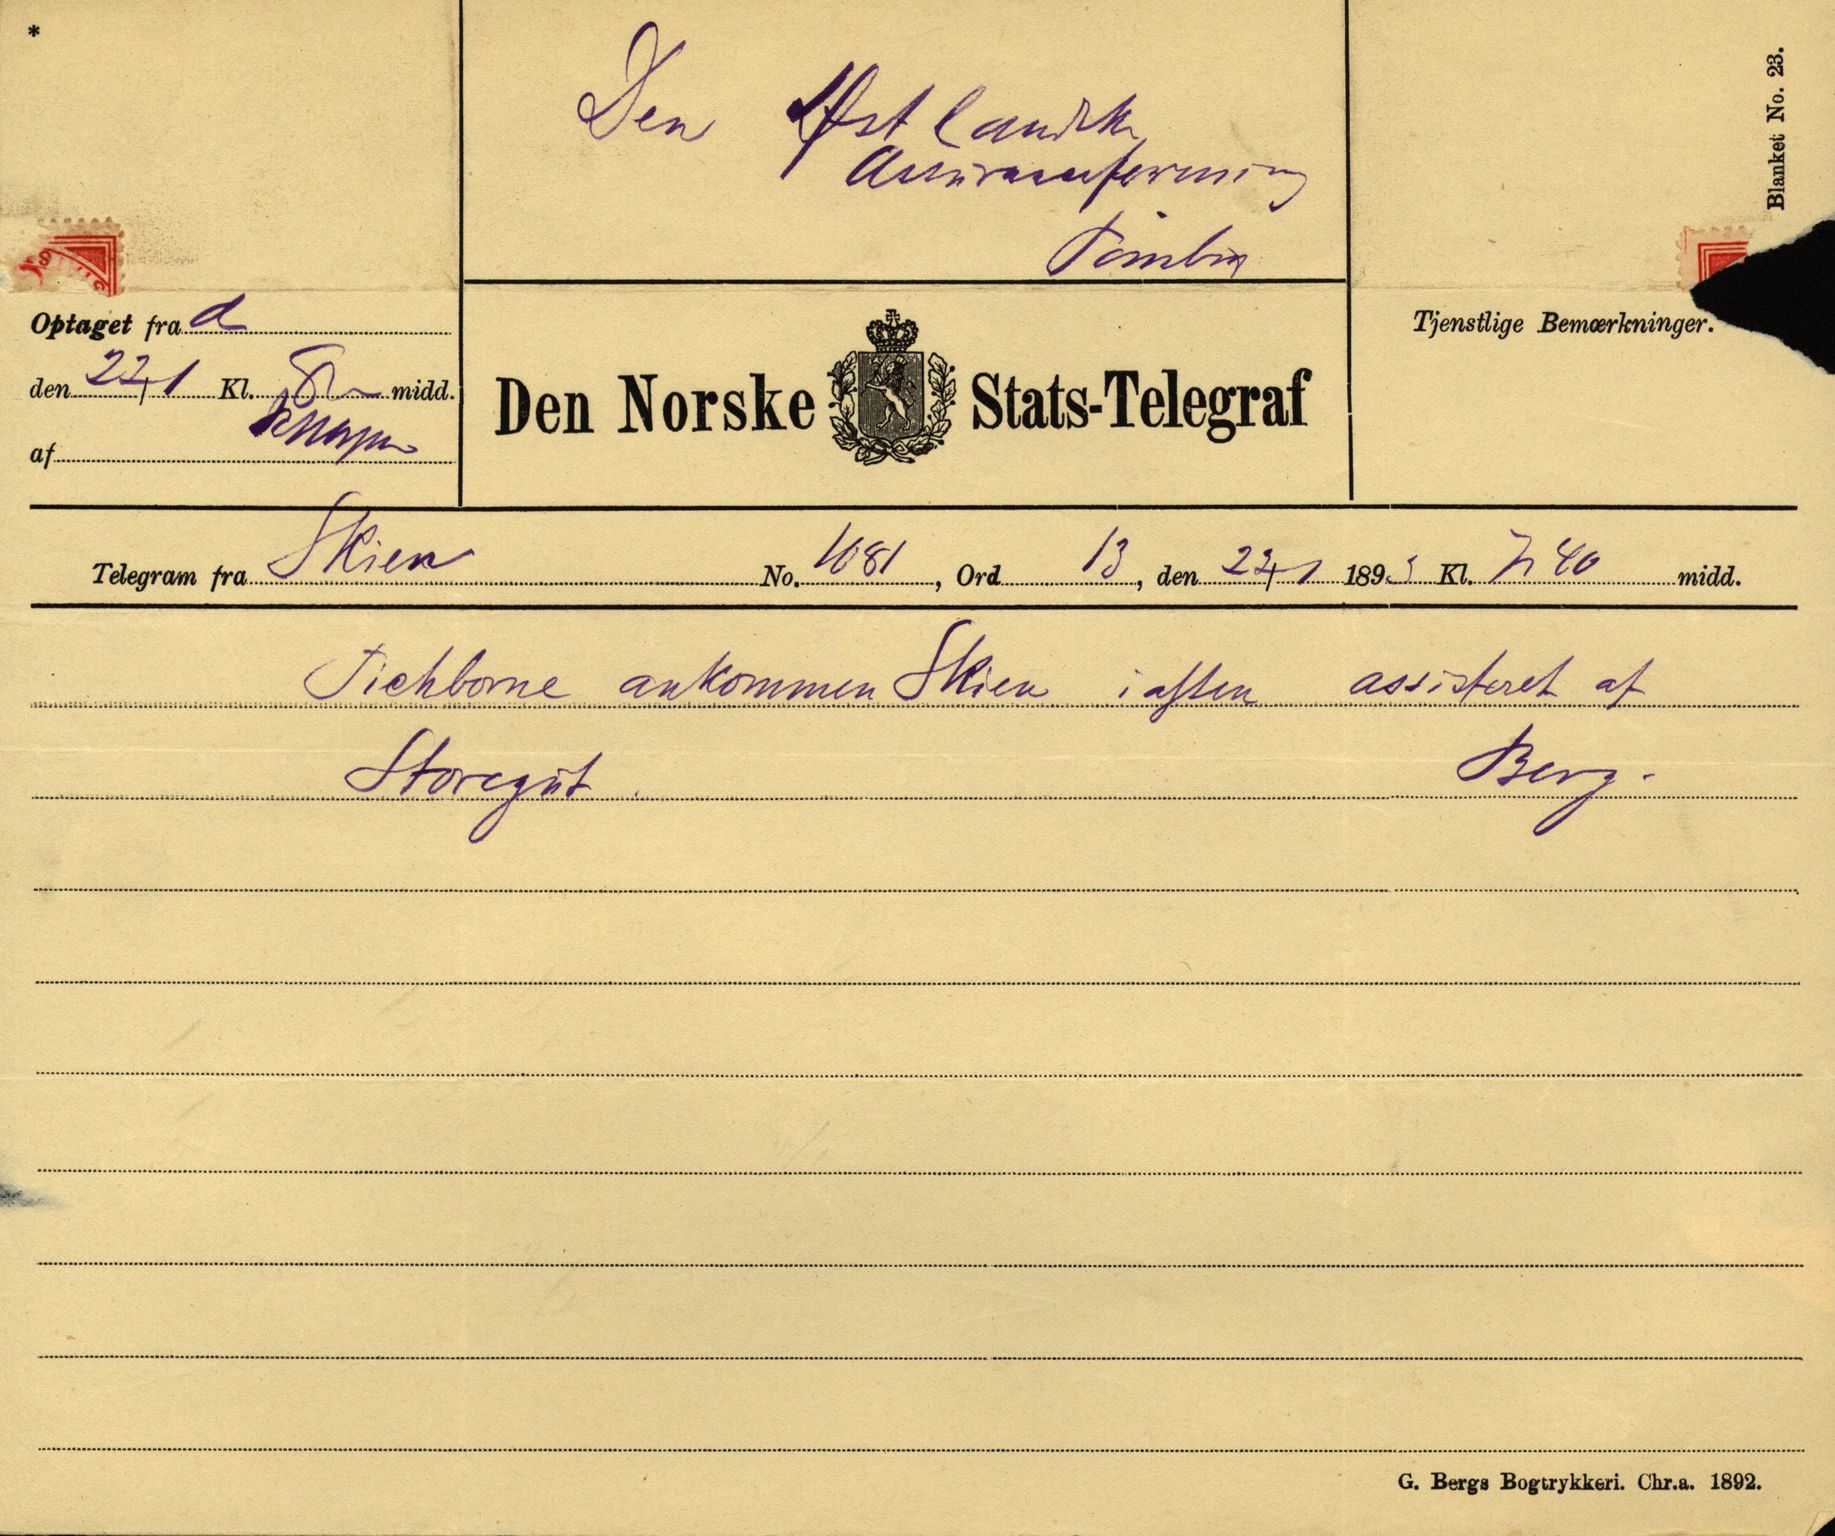 *
Den Østlandske
Assuranceforening
Blanket No. 23.
Optaget fra d
den 22/1 Kl. 8 midd.
af
Den Norske Stats-Telegraf
Tjenstlige Bemærkninger.
Telegram fra Skien No. 1081, Ord 13, den 22/1 1893 Kl. 7 40 midd.
Tichborne ankommen Skien iaften assisteret af
Storegut. Berg.
G. Bergs Bogtrykkeri. Chr.a. 1892.